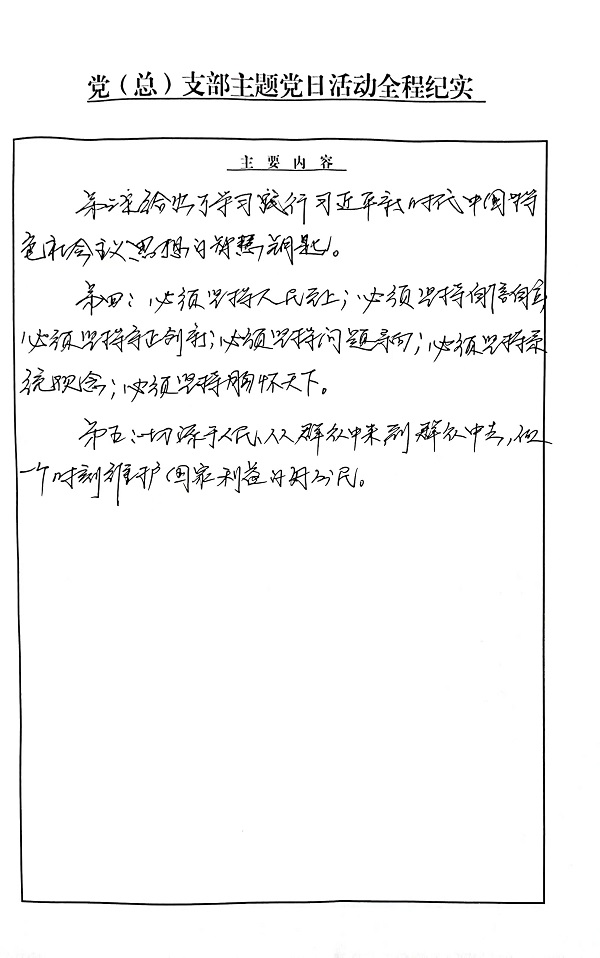 党（总）支部主题党日活动全程纪实
主要内容
第三：给出了学习践行习近平新时代中国特
色社会主义思想的智慧钥匙。
第四：必须坚持人民至上；必须坚持自信自立
必须坚持守正创新；必须坚持问题导向；必须坚持系
统观念；必须坚持胸怀天下。
第五：一切源于人民、从群众中来到群众中去，做
一个时刻维护国家利益的好公民。